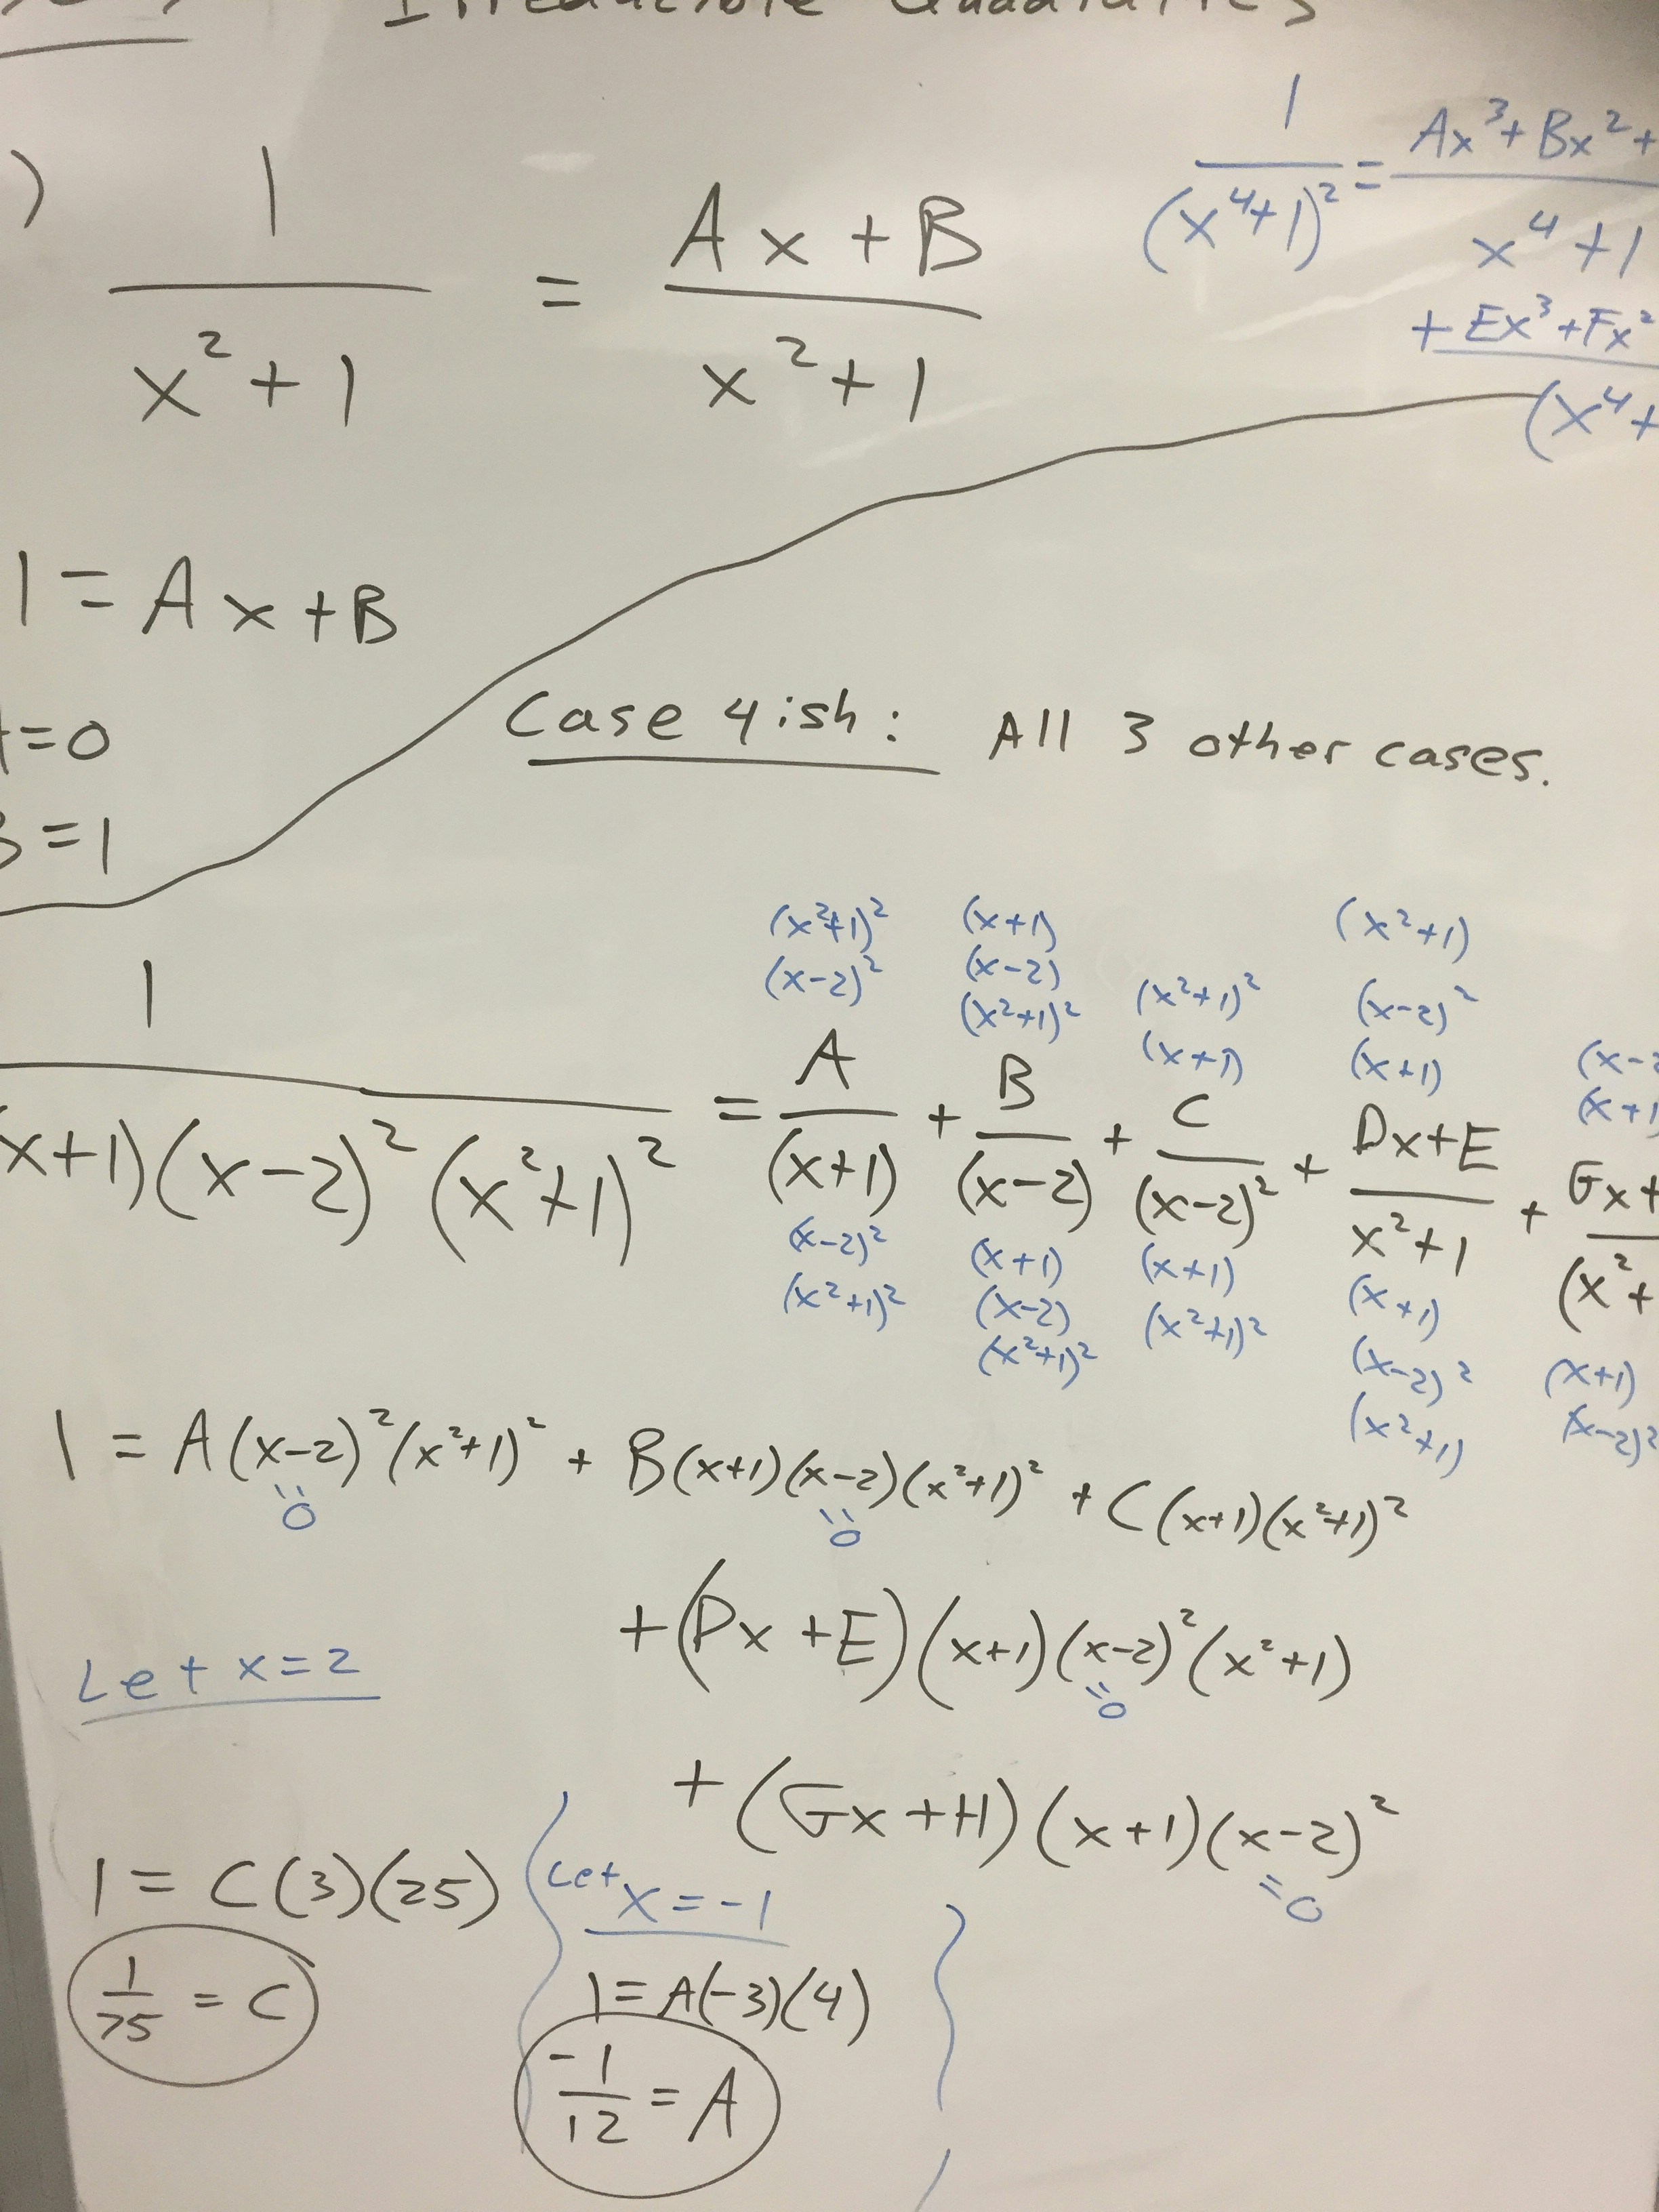 Irreducible Quadratics
) 1 / x² + 1 = Ax + B / x² + 1
1 / (x⁴+1)² = Ax³ + Bx² + / x⁴ + 1
+ Ex³ + Fx² / (x⁴+
1 = Ax + B
=0
=1
Case 4ish: All 3 other cases.
(x²+1)² (x+1) (x²+1)
(x-2)² (x-2) (x²+1)² (x-2)²
(x²+1)² (x+1) (x+1) (x-2
(x+1
1 / (x+1)(x-2)²(x²+1)² = A / (x+1) + B / (x-2) + C / (x-2)² + Dx+E / x²+1 + Gx+ / (x²+
(x-2)² (x+1) (x+1) (x+1)
(x²+1)² (x-2) (x²+1)² (x-2)² (x+1)
(x²+1)² (x²+1) (x-2)²
1 = A(x-2)²(x²+1)² + B(x+1)(x-2)(x²+1)² + C(x+1)(x²+1)²
=0 =0
+ (Dx + E)(x+1)(x-2)²(x²+1)
=0
Let x=2
+ (Gx + H)(x+1)(x-2)²
=0
1 = C(3)(25)
1/75 = C
Let x = -1
1 = A(-3)(4)
-1/12 = A